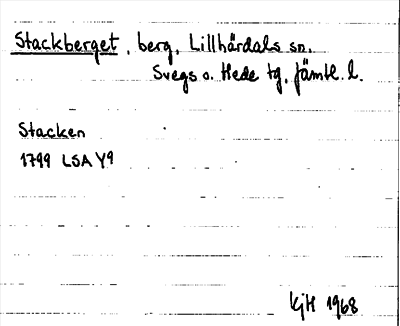 Stackberget, berg, Lillhärdals sn.
Svegs o. Hede tg, Jämtl. l.
Stacken
1799 LSA Y9
KjH 1968